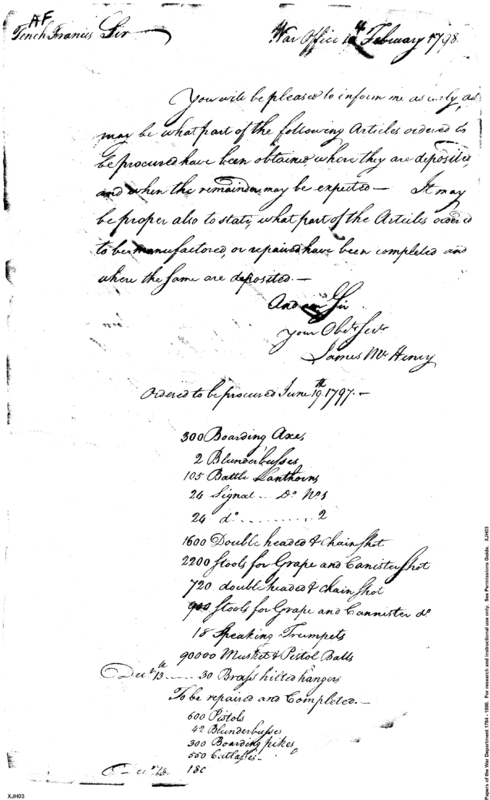 AF.
Tench Francis Sir
War Office 10th February 1798.
You will be pleased to inform me as early as
may be what part of the following Articles ordered to
be procured have been obtained where they are deposited,
and when the remainder may be expected — It may
be proper also to state, what part of the Articles ordered
to be manufactored, or repaired have been completed and
where the same are deposited. —
And am Sir
your Obdt Servt
James McHenry
Ordered to be procured June 19th 1797. —
300 Boarding Axes,
2 Blunderbusses
105 Battle Lanthorns
24 Signal ... Do No 1
24 do .......... 2
1600 Double headed & chain Shot
2200 Stools for Grape and Canister Shot
720 double headed & chain Shot
900 Stools for Grape and Cannister do
18 Speaking Trumpets
90000 Musket & Pistol Balls
Decr 13th ..... 30 Brass hilted hangers
To be repaired and Completed. —
600 Pistols
42 Blunderbusses
300 Boarding pikes,
550 Cutlasses -
Decr 13. 180
XJH03
Papers of the War Department 1784 - 1800. For research and instructional use only. See Permissions Guide. XJH03